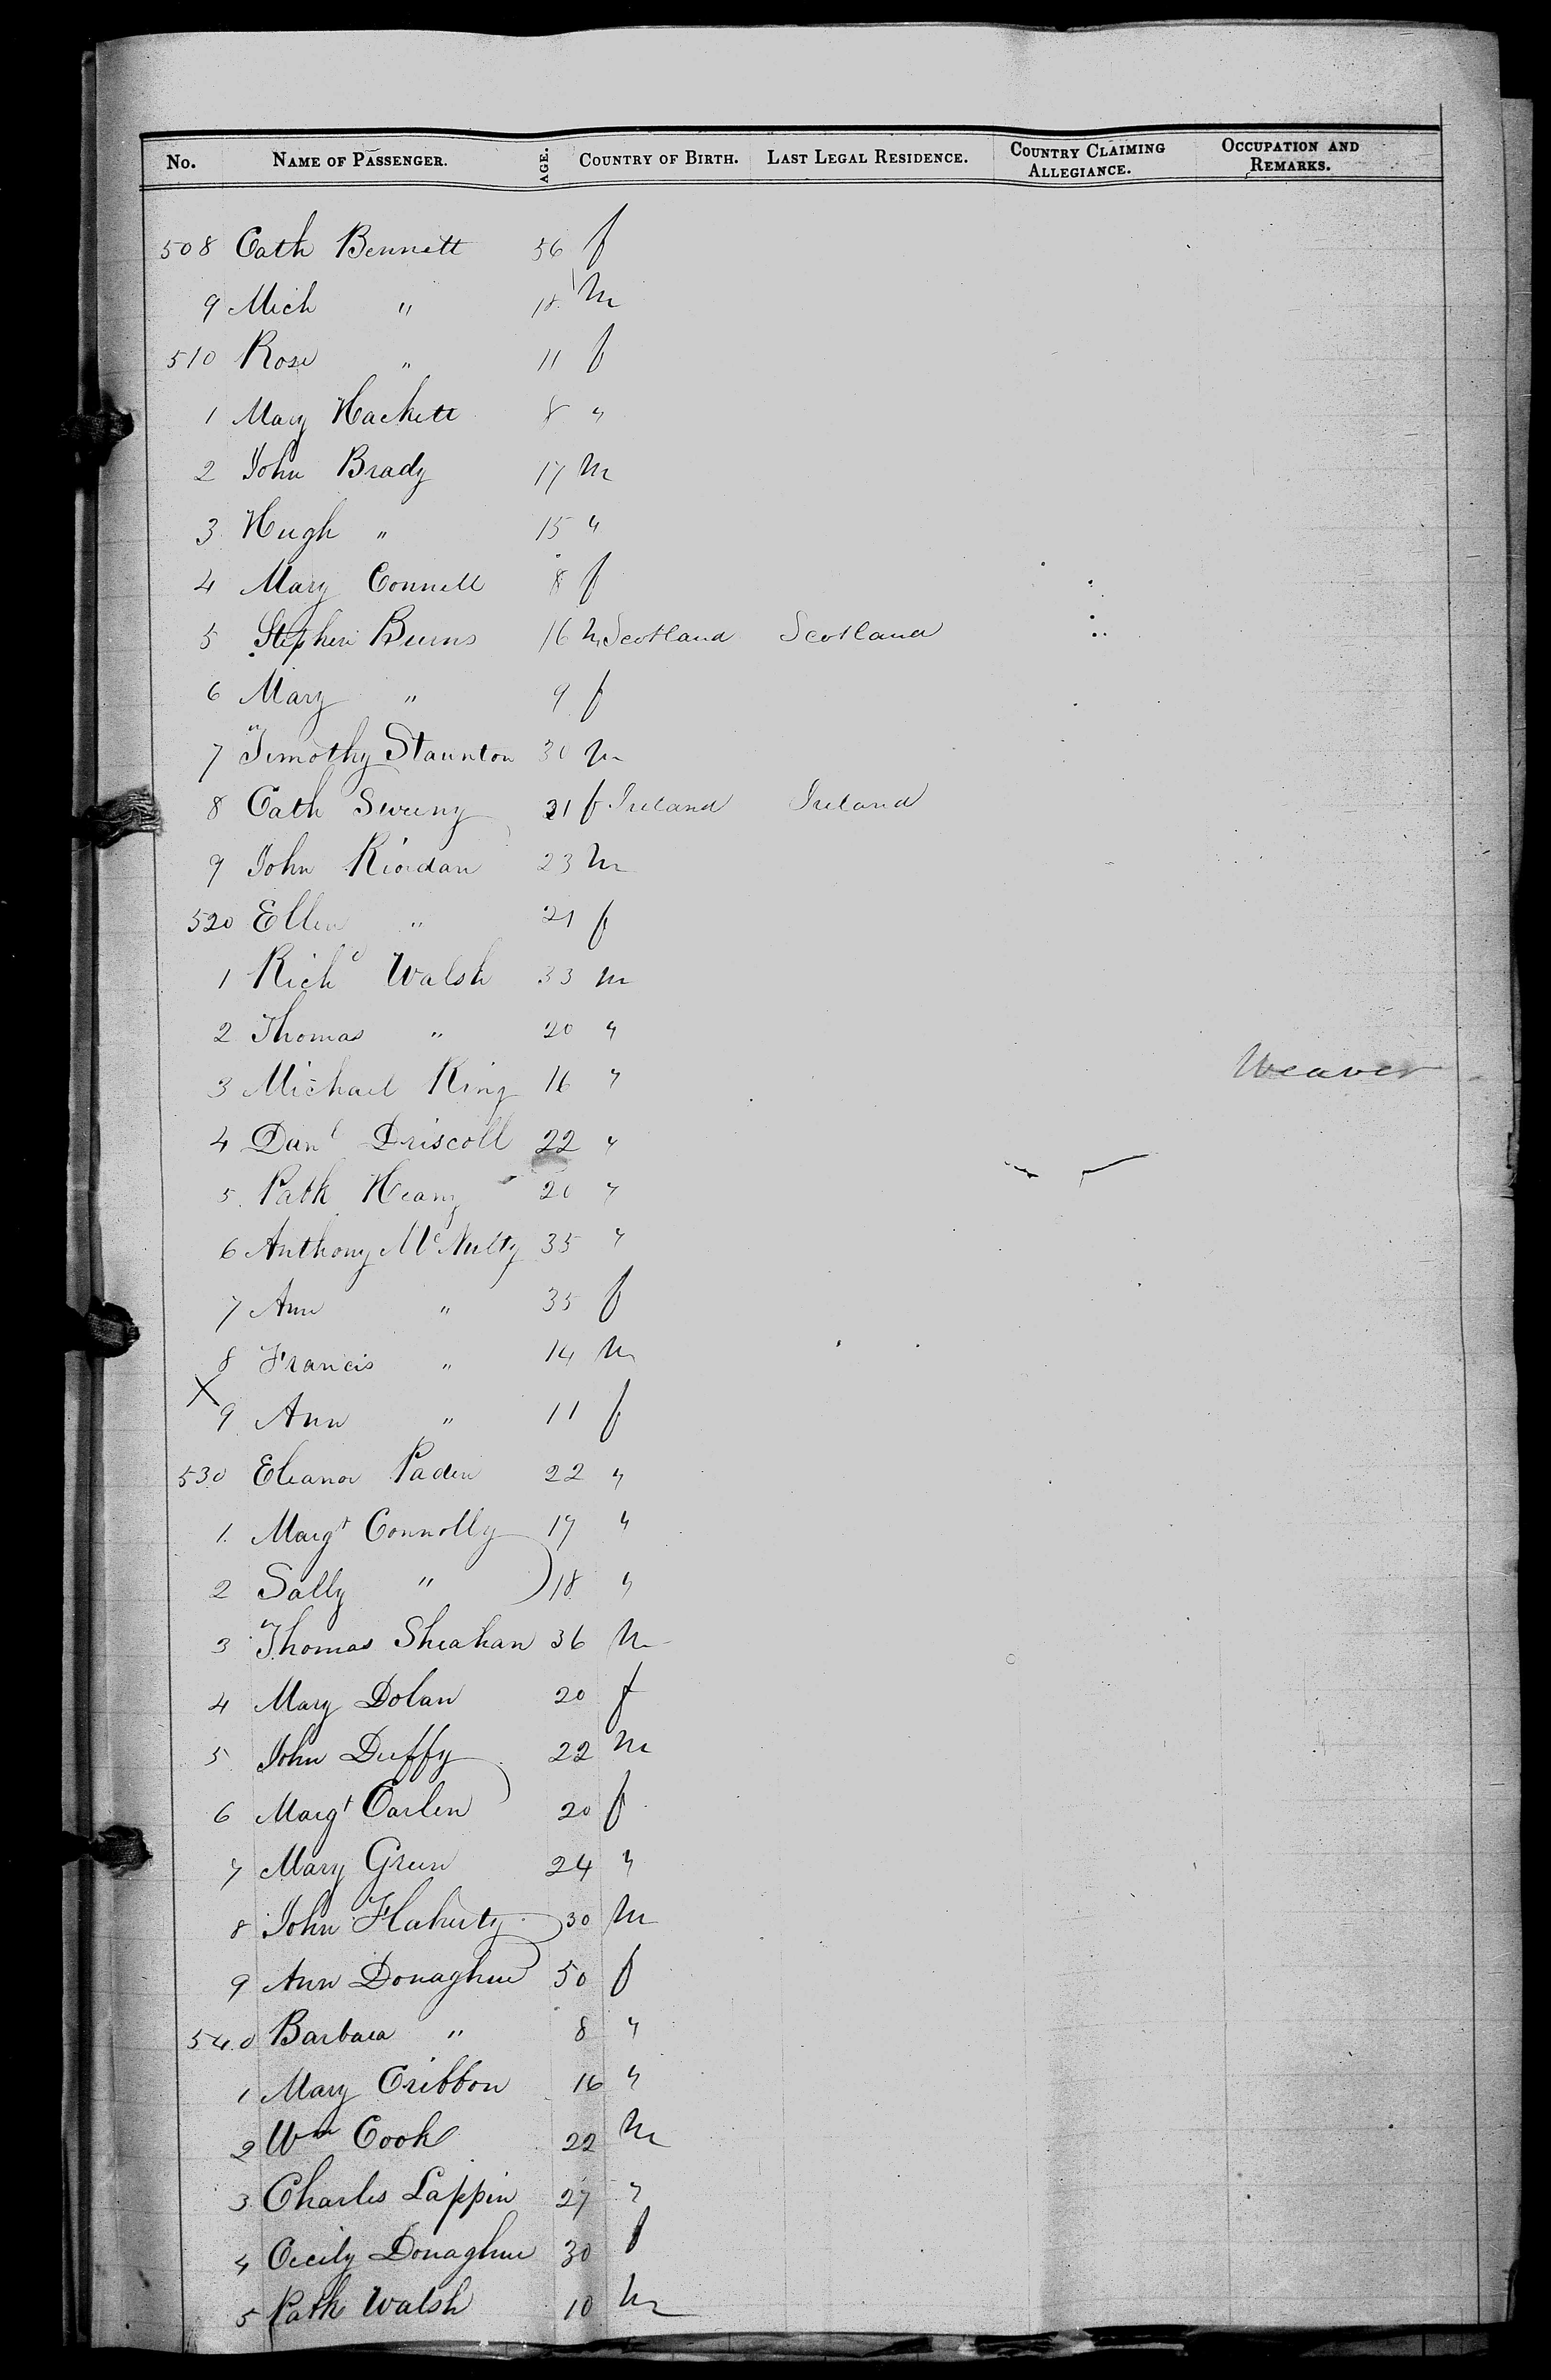 No. NAME OF PASSENGER. AGE. COUNTRY OF BIRTH. LAST LEGAL RESIDENCE. COUNTRY CLAIMING ALLEGIANCE. OCCUPATION AND REMARKS.
508 Cath Bennett 56 f
9 Mich " 18 m
510 Rose " 11 f
1 Mary Hackett 8 "
2 John Brady 17 m
3 Hugh " 15 "
4 Mary Connell 8 f
5 Stephen Burns 16 m Scotland Scotland
6 Mary " 9 f
7 Timothy Staunton 30 m
8 Cath Sweeny 21 f Ireland Ireland
9 John Riordan 23 m
520 Ellen " 21 f
1 Richd Walsh 33 m
2 Thomas " 20 "
3 Michael King 16 " Weaver
4 Danl Driscoll 22 "
5 Patk Heany 20 "
6 Anthony McNulty 35 "
7 Ann " 35 f
8 Francis " 14 m
X 9 Ann " 11 f
530 Eleanor Paden 22 "
1 Margt Connolly 19 "
2 Sally " 18 "
3 Thomas Sheahan 36 m
4 Mary Dolan 20 f
5 John Duffy 22 m
6 Margt Carlen 20 f
7 Mary Green 24 "
8 John Flaherty 30 m
9 Ann Donaghue 50 f
540 Barbara " 8 "
1 Mary Cribbon 16 "
2 Wm Cook 22 m
3 Charles Lappin 27 "
4 Cecily Donaghue 30 f
5 Patk Walsh 10 m